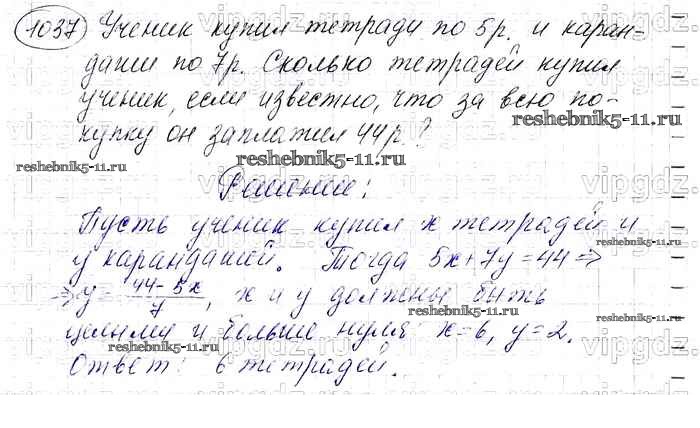 1037 Ученик купил тетради по 5р. и каран-
даши по 7р. Сколько тетрадей купил
ученик, если известно, что за всю по-
купку он заплатил 44р?
reshebnik5-11.ru
reshebnik5-11.ru
reshebnik5-11.ru
Решение:
Пусть ученик купил x тетрадей и
y карандашей. Тогда 5x+7y=44 =>
reshebnik5-11.ru
=> y = (44-5x)/7, x и y должны быть
целыми и больше нуля x=6, y=2.
reshebnik5-11.ru
reshebnik5-11.ru
Ответ: 6 тетрадей.
vipgdz.ru